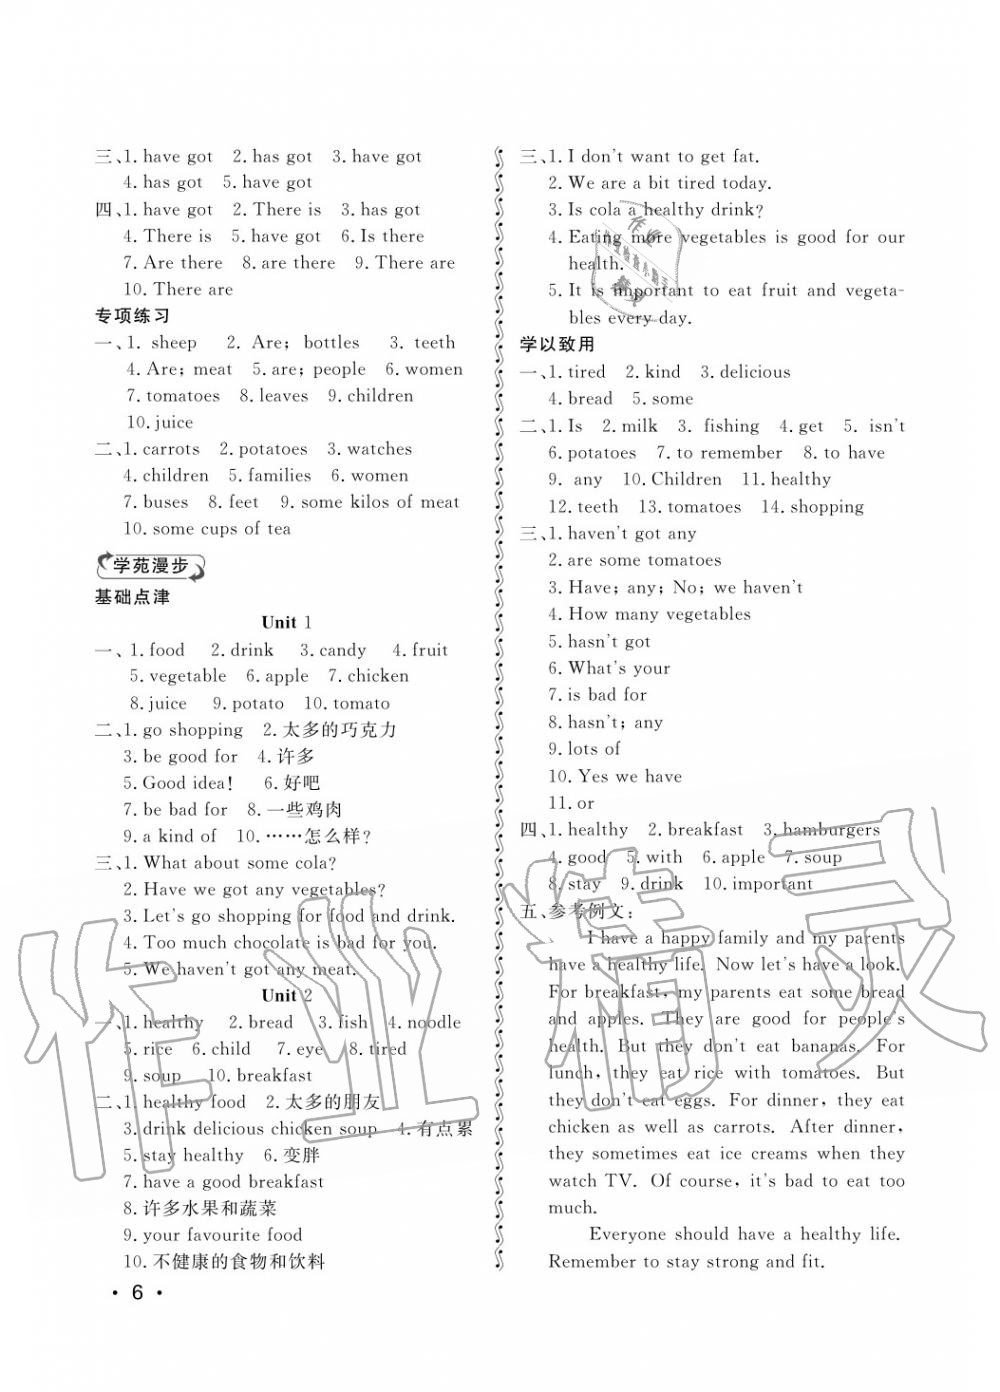 三、1. have got 2. has got 3. have got
4. has got 5. have got
四、1. have got 2. There is 3. has got
4. There is 5. have got 6. Is there
7. Are there 8. are there 9. There are
10. There are
专项练习
一、1. sheep 2. Are; bottles 3. teeth
4. Are; meat 5. are; people 6. women
7. tomatoes 8. leaves 9. children
10. juice
二、1. carrots 2. potatoes 3. watches
4. children 5. families 6. women
7. buses 8. feet 9. some kilos of meat
10. some cups of tea
学苑漫步
基础点津
Unit 1
一、1. food 2. drink 3. candy 4. fruit
5. vegetable 6. apple 7. chicken
8. juice 9. potato 10. tomato
二、1. go shopping 2. 太多的巧克力
3. be good for 4. 许多
5. Good idea! 6. 好吧
7. be bad for 8. 一些鸡肉
9. a kind of 10. ……怎么样?
三、1. What about some cola?
2. Have we got any vegetables?
3. Let's go shopping for food and drink.
4. Too much chocolate is bad for you.
5. We haven't got any meat.
Unit 2
一、1. healthy 2. bread 3. fish 4. noodle
5. rice 6. child 7. eye 8. tired
9. soup 10. breakfast
二、1. healthy food 2. 太多的朋友
3. drink delicious chicken soup 4. 有点累
5. stay healthy 6. 变胖
7. have a good breakfast
8. 许多水果和蔬菜
9. your favourite food
10. 不健康的食物和饮料
• 6 •
三、1. I don't want to get fat.
2. We are a bit tired today.
3. Is cola a healthy drink?
4. Eating more vegetables is good for our
health.
5. It is important to eat fruit and vegeta-
bles every day.
学以致用
一、1. tired 2. kind 3. delicious
4. bread 5. some
二、1. Is 2. milk 3. fishing 4. get 5. isn't
6. potatoes 7. to remember 8. to have
9. any 10. Children 11. healthy
12. teeth 13. tomatoes 14. shopping
三、1. haven't got any
2. are some tomatoes
3. Have; any; No; we haven't
4. How many vegetables
5. hasn't got
6. What's your
7. is bad for
8. hasn't; any
9. lots of
10. Yes we have
11. or
四、1. healthy 2. breakfast 3. hamburgers
4. good 5. with 6. apple 7. soup
8. stay 9. drink 10. important
五、参考例文:
I have a happy family and my parents
have a healthy life. Now let's have a look.
For breakfast, my parents eat some bread
and apples. They are good for people's
health. But they don't eat bananas. For
lunch, they eat rice with tomatoes. But
they don't eat eggs. For dinner, they eat
chicken as well as carrots. After dinner,
they sometimes eat ice creams when they
watch TV. Of course, it's bad to eat too
much.
Everyone should have a healthy life.
Remember to stay strong and fit.
作业精灵